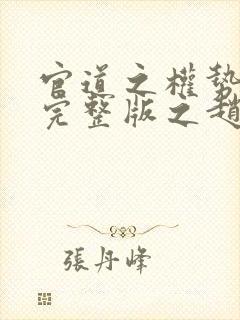 官道之權勢
完整版之趙
張丹峰